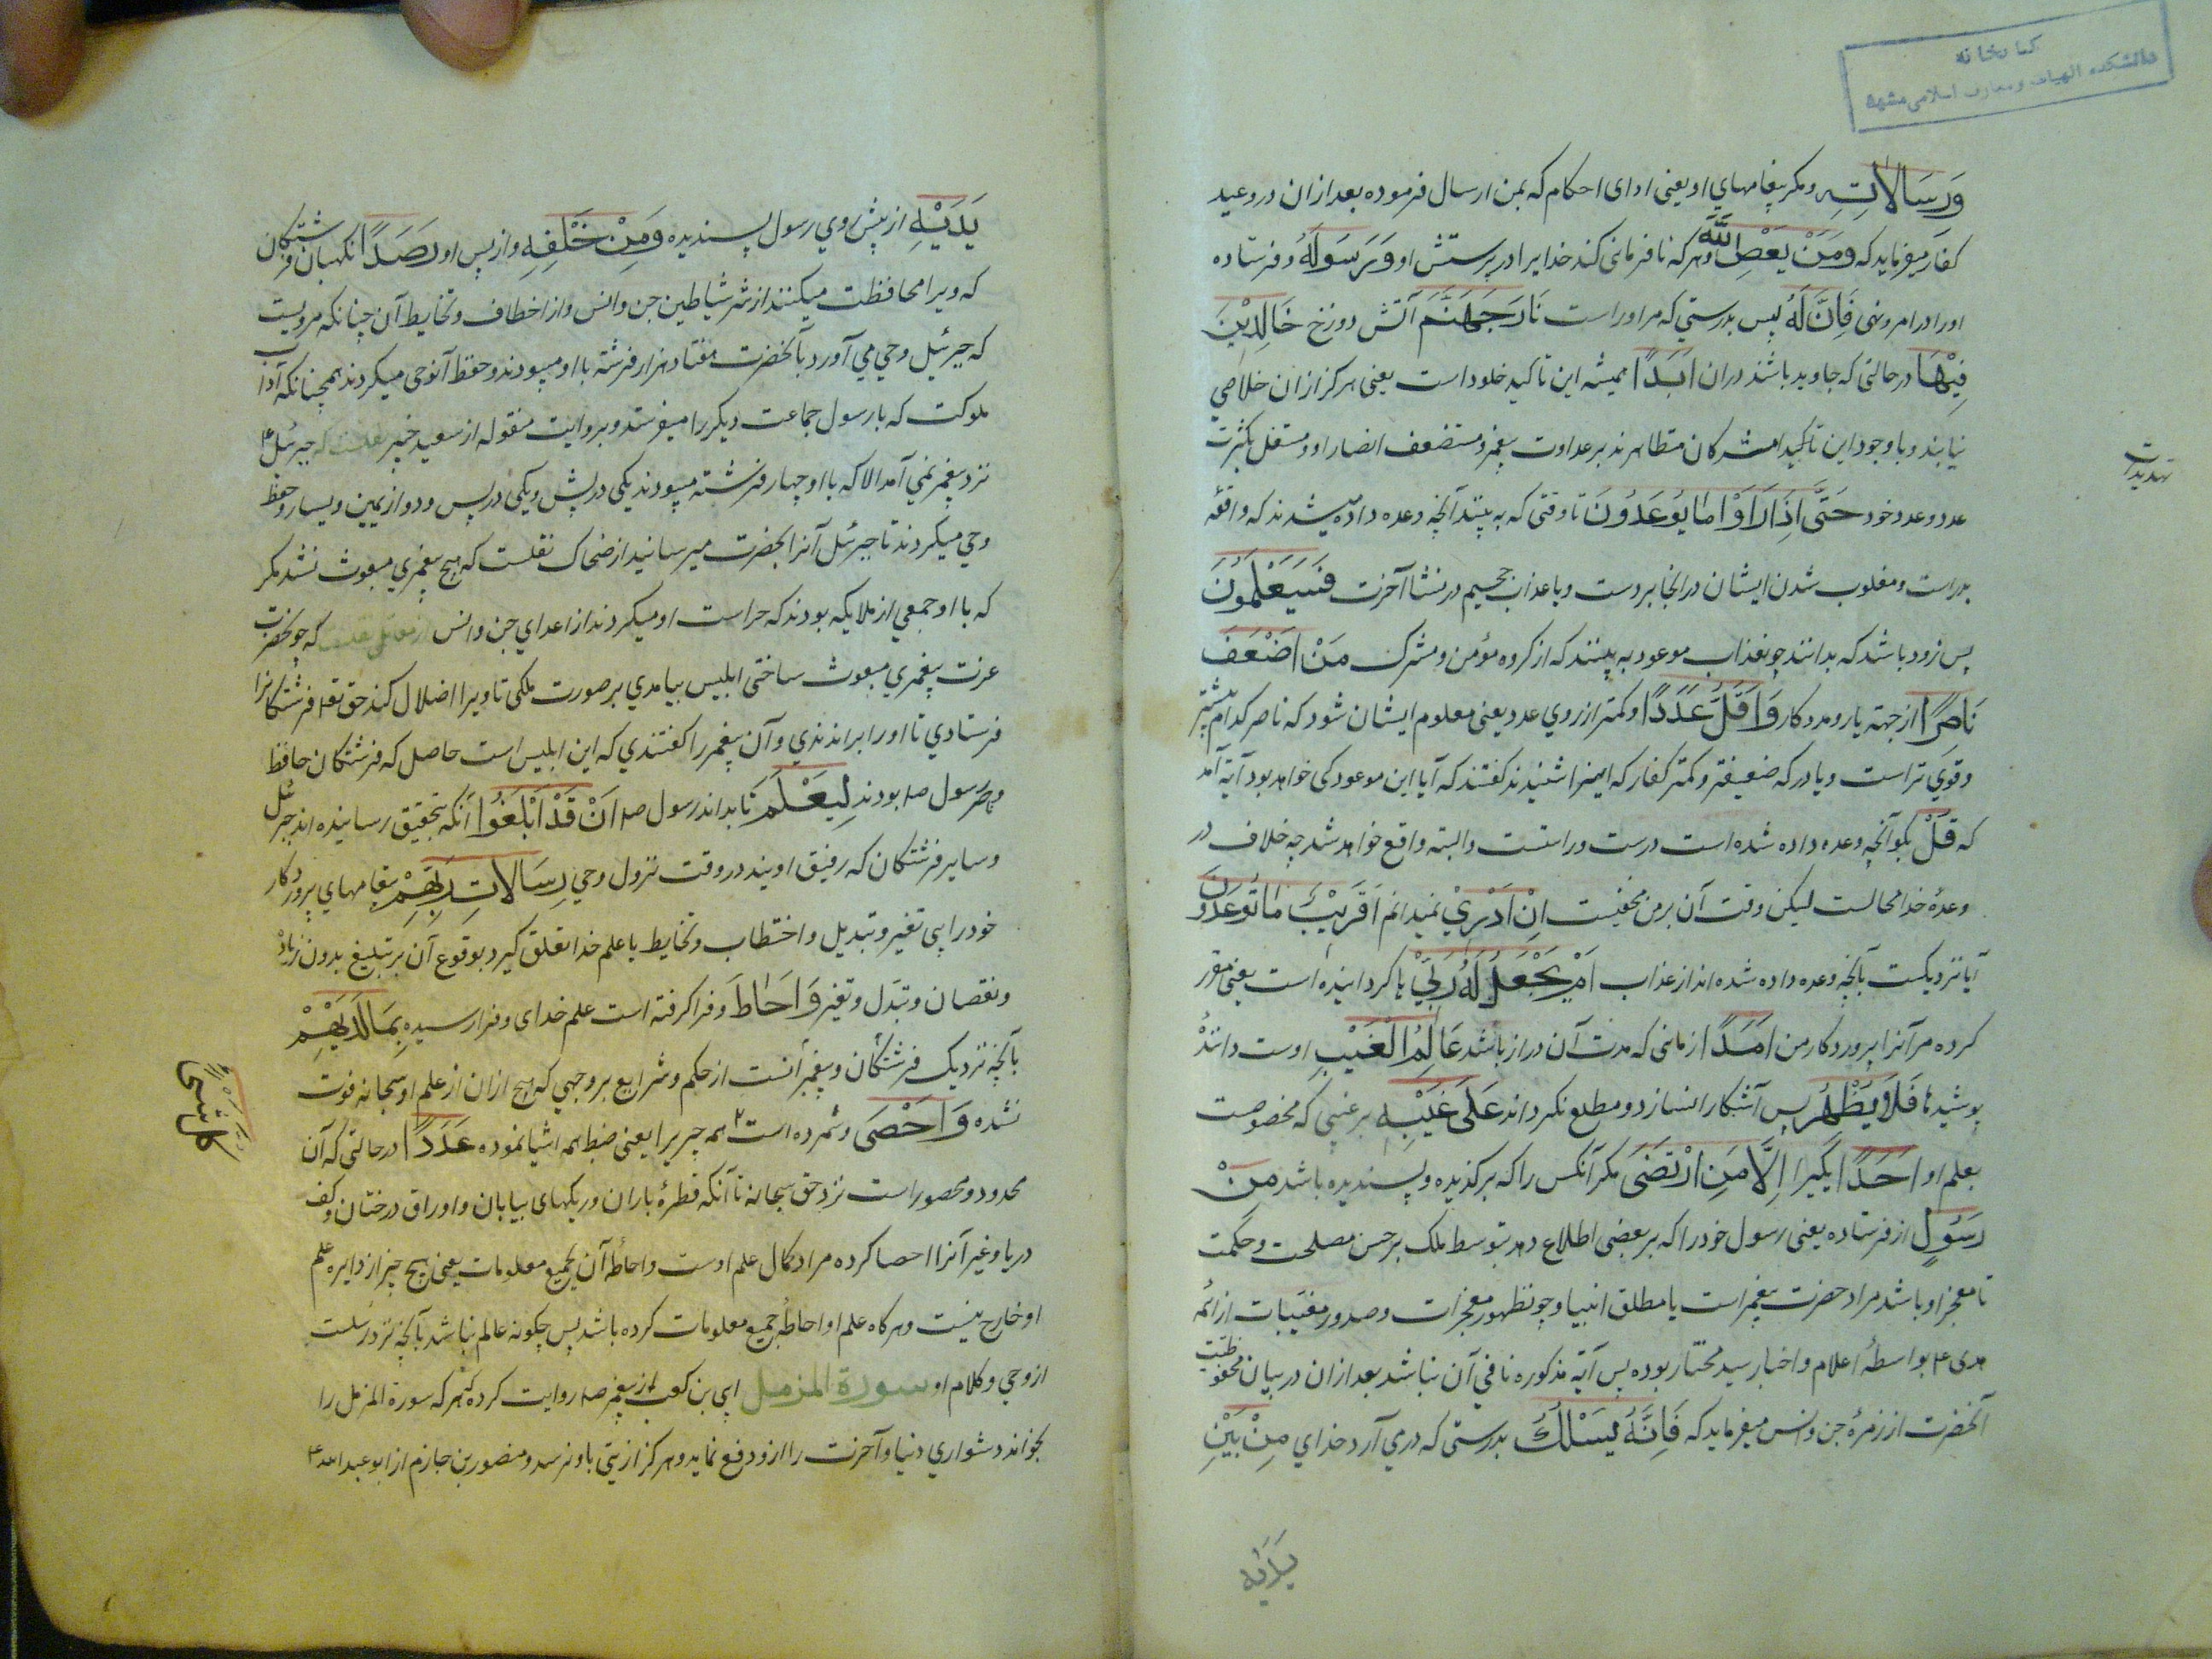 كتابخانه
دانشكده الهيات ومعارف اسلامى مشهد
وَرِسَالاتِهِ ومكر پيغامهاي او يعنى اداى احكام كه بمن ارسال فرموده بعد ازان در وعيد
كفار ميفرمايد كه وَمَنْ يَعْصِ اللَّهَ وهركه نافرمانى كند خدايرا در پرستش او وَرَسُولَهُ وفرستاده
اورا در امر ونهى فَاِنَّ لَهُ پس بدرستي كه مر اوراست نَارَ جَهَنَّمَ آتش دوزخ خَالِدِيْنَ
فِيْهَا در حالتى كه جاويد باشند دران اَبَدًا هميشه اين تاكيد خلود است يعنى هركز ازان خلاصي
نيابند وباوجود اين تاكيد امشركان متظاهرند بر عداوت پيغمبر ومستضعف انصار او ومستقل بكثرت
تهديدات
عدد وعدد خود حَتَّى اِذَا رَاَوْا مَا يُوعَدُونَ تا وقتى كه به بينند آنچه وعده داده ميشدند كه واقعه
بدر است ومغلوب شدن ايشان در انجا بروست ويا عذاب جحيم در نشا آخرت فَسَيَعْلَمُونَ
پس زود باشد كه بدانند چو بعذاب موعود به بينند كه از كروه مؤمن ومشرك مَنْ اَضْعَفُ
نَاصِرًا از جهة يار ومددكار وَاَقَلُّ عَدَدًا وكمتر از روي عدد يعنى معلوم ايشان شود كه ناصر كدام بيشتر
وقوي تر است وياور كه ضعيفتر وكمتر كفار كه اينرا شنيدند كفتند كه آيا اين موعود كى خواهد بود آيه آمد
كه قُلْ بكو آنچه وعده داده شده است درست وراستست والبته واقع خواهد شد چه خلاف در
وعدهٔ خدا محالست ليكن وقت آن بر من مخفيست اِنْ اَدْرِيْ نميدانم اَقَرِيْبٌ مَا تُوعَدُونَ
آيا نزديكست بآنچه وعده داده شده اند از عذاب اَمْ يَجْعَلُ لَهُ رَبِّيْ يا كردانيده است يعنى مقرر
كرده مر آنرا پروردكار من اَمَدًا زمانى كه مدت آن دراز باشد عَالِمُ الْغَيْبِ اوست دانندهٔ
پوشيدها فَلَا يُظْهِرُ پس آشكارا نسازد ومطلع نكرداند عَلَى غَيْبِهِ بر غيبي كه مخصوصت
بعلم او اَحَدًا يكيرا اِلَّا مَنِ ارْتَضَى مكر آنكس را كه بركزيده وپسنديده باشد مِنْ
رَسُولٍ از فرستاده يعنى رسول خود را كه بر بعضى اطلاع دهد بتوسط ملك بر حسن مصلحت وحكمت
تا معجز او باشد مراد حضرت پيغمبر است يا مطلق انبيا وچو نظهور معجزات وصدور مغيبات از ائمه
هدى ع بواسطهٔ اعلام واخبار سيد مختار بوده پس آيهٔ مذكوره نافى آن نباشد بعد ازان در بيان محفوظيت
آنحضرت از زمرهٔ جن وانس ميفرمايد كه فَاِنَّهُ يَسْلُكُ بدرستى كه دري آرد خداي مِنْ بَيْنِ
يديه
يَدَيْهِ از پيش روي رسول پسنديده وَمِنْ خَلْفِهِ واز پس او رَصَدًا نكهبان فرشتكان
كه ويرا محافظت ميكنند از شر شياطين جن وانس واز اخطاف وتخاليط آن چنانكه مرويست
كه جبرئيل وحي مي آورد بآنحضرت هفتاد هزار فرشته با او ميبودند وحفظ آنوحى ميكردند همچنانكه آداب
ملوكت كه با رسول جماعت ديكررا ميفرستند وبروايت منقوله از سعيد جبير نقلست كه جبرئيل ع
نزد پيغمبر نمي آمد الا كه با او چهار فرشته ميبودند يكى در پيش ويكى در پس ودو از يمين ويسار وحفظ
وحي ميكردند تا جبرئيل آنرا بحضرت ميرسانيد از ضحاك نقلست كه هيچ پيغمبري مبعوث نشد مكر
كه با او جمعي از ملايكه بودند كه حراست او ميكردند از اعداي جن وانس از مقاتل نقلست كه چو حضرت
عزت پيغمبري مبعوث ساختى ابليس بيامدي بر صورت ملكى تا ويرا اضلال كند حق تعه فرشتكانرا
فرستادي تا اورا براندندي وآن پيغمبر را كفتندي كه اين ابليس است حاصل كه فرشتكان حافظ
وناصر رسول صه بودند لِيَعْلَمَ تا بداند رسول صه اَنْ قَدْ اَبْلَغُوا آنكه بتحقيق رسانيده اند جبرئيل
وساير فرشتكان كه رفيق اويند در وقت نزول وحي رِسَالاتِ رَبِّهِمْ پيغامهاي پروردكار
خود را بي تغير وتبديل واختطاب وتخاليط يا علم خدا تعلق كيرد بوقوع آن بر تبليغ بدون زياد
ونقصان وتبدل وتغير وَاَحَاطَ وفرا كرفته است علم خداى وفرا رسيده بِمَا لَدَيْهِمْ
بآنچه نزديك فرشتكان وپيغمبر آنست از حكم وشرايع بر وجهي كه هيچ ازان از علم او سبحانه فوت
نشده وَاَحْصَى وشمرده است همه چيز را يعنى ضبط همه اشيا نموده عَدَدًا در حالتى كه آن
كل شيء
محدود ومحصور است نزد حق سبحانه تا آنكه قطرهٔ باران وريكهاى بيابان واوراق درختان وكف
دريا وغير آنرا احصا كرده مراد كمال علم اوست واحاطه آن بجميع معلومات يعنى هيچ چيز از دايره علم
او خارج نيست وهركاه علم او احاطهٔ جميع معلومات كرده باشد پس چكونه عالم نباشد بآنچه نزد رسلست
از وحي وكلام او سورة المزمل ابي بن كعب از پيغمبر صه روايت كرده كه هر كه سورة المزمل را
بخواند دشواري دنيا وآخرت را ازو دفع نمايد وهركز ازيتى باو نرسد ومنصور بن حازم از ابو عبد الله ع